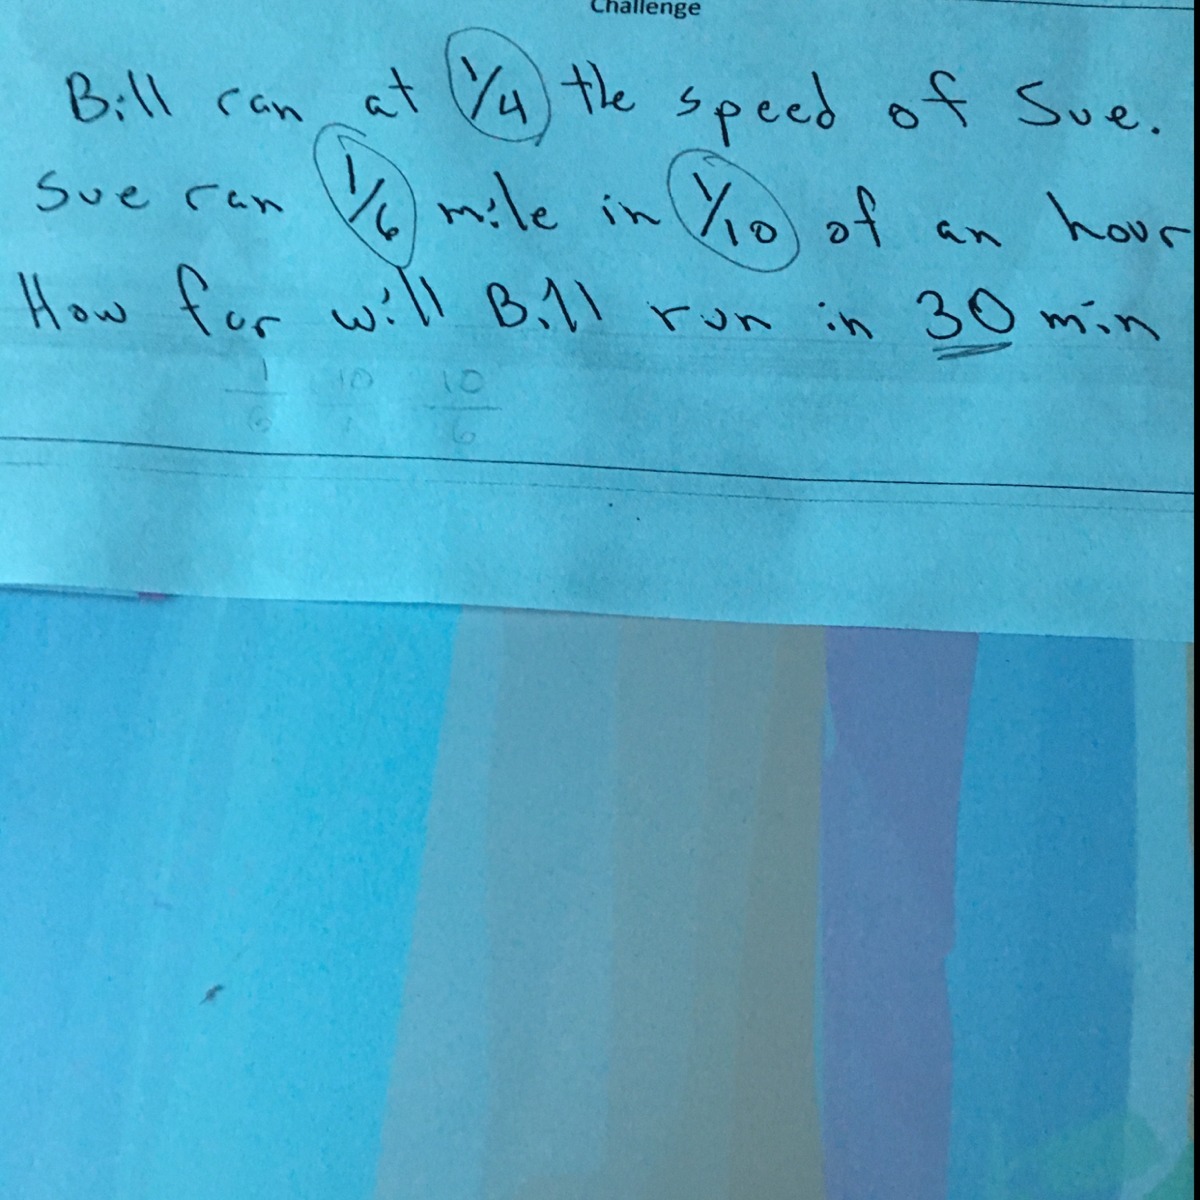 Challenge
Bill ran at 1/4 the speed of Sue.
Sue ran 1/6 mile in 1/10 of an hour
How far will Bill run in 30 min
1/6 10/1 10/6